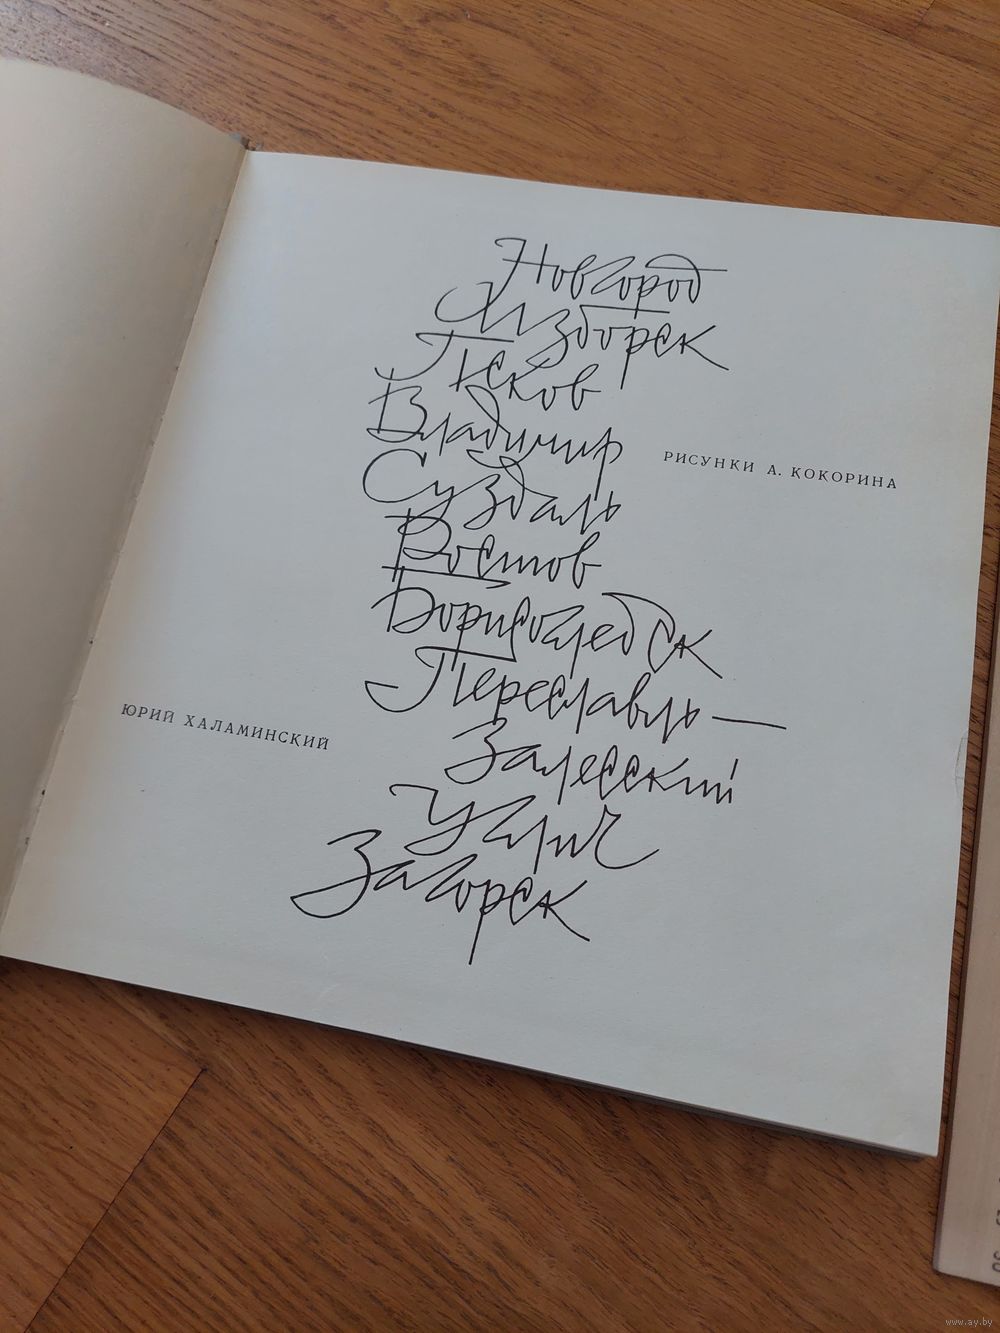 Новгород
Изборск
Псков
Владимир
РИСУНКИ А. КОКОРИНА
Суздаль
Ростов
Борисоглебск
Переславль —
ЮРИЙ ХАЛАМИНСКИЙ
Залесский
Углич
Загорск
www.ay.by